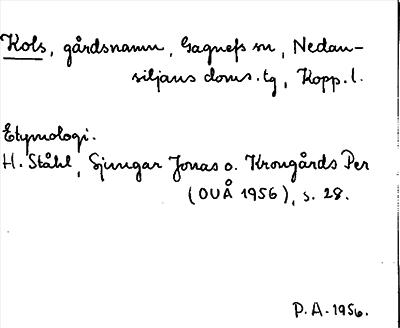 Kols, gårdsnamn, Gagnefs sn, Nedan-
siljans doms.tg, Kopp. l.
Etymologi.
H. Ståhl, Gjungar Jonas o. Krongårds Per
(OUÅ 1956), s. 28.
P.A. 1956.